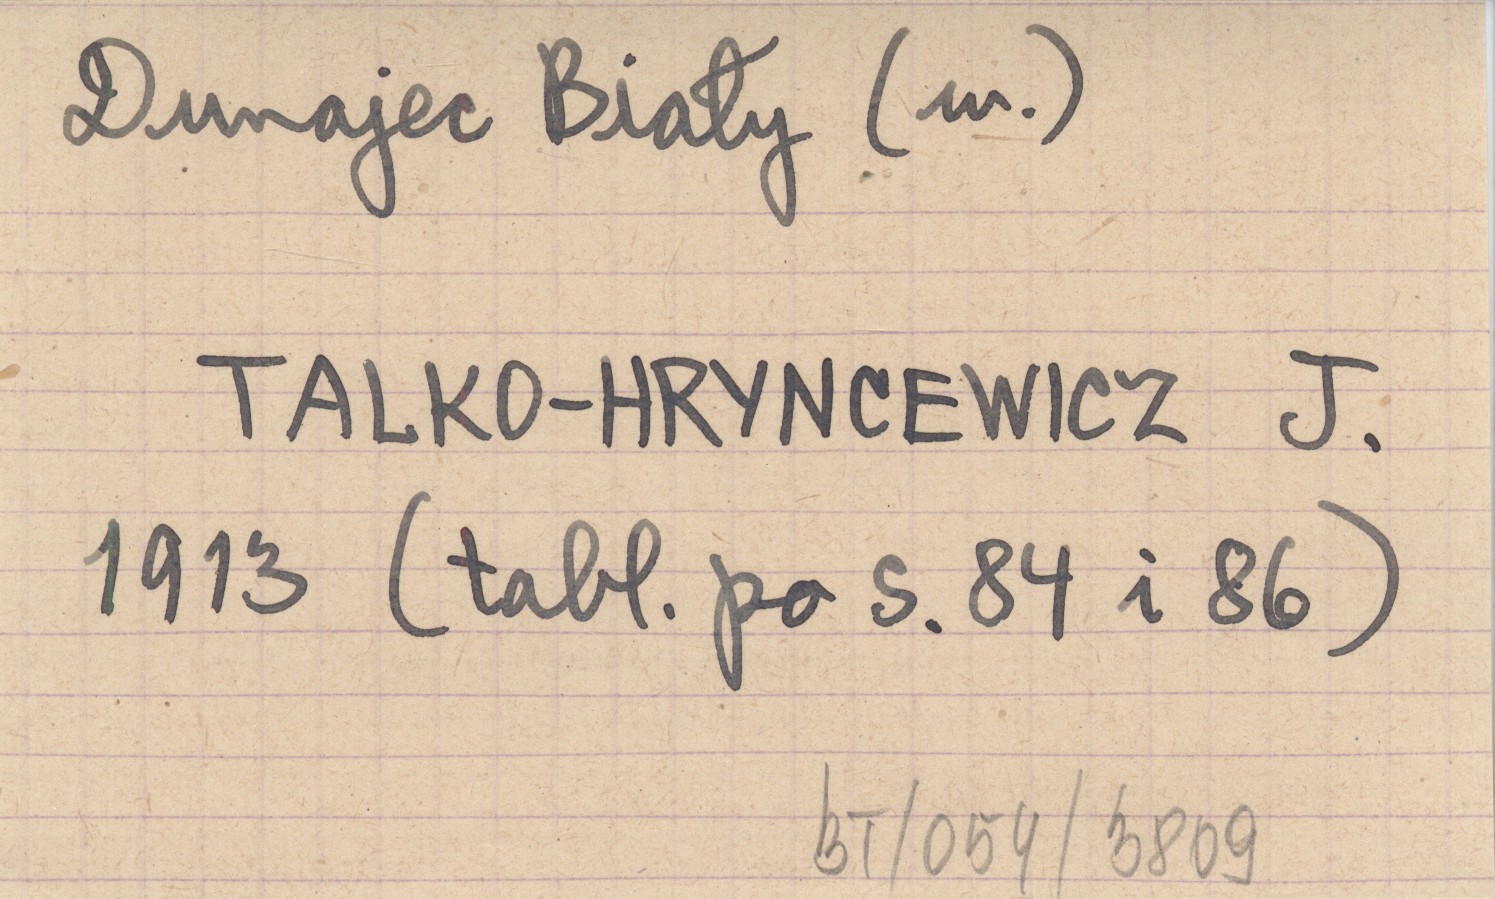 Dunajec Biały (m.)
TALKO-HRYNCEWICZ J.
1913 (tabl. po s. 84 i 86)
BT/054/3809